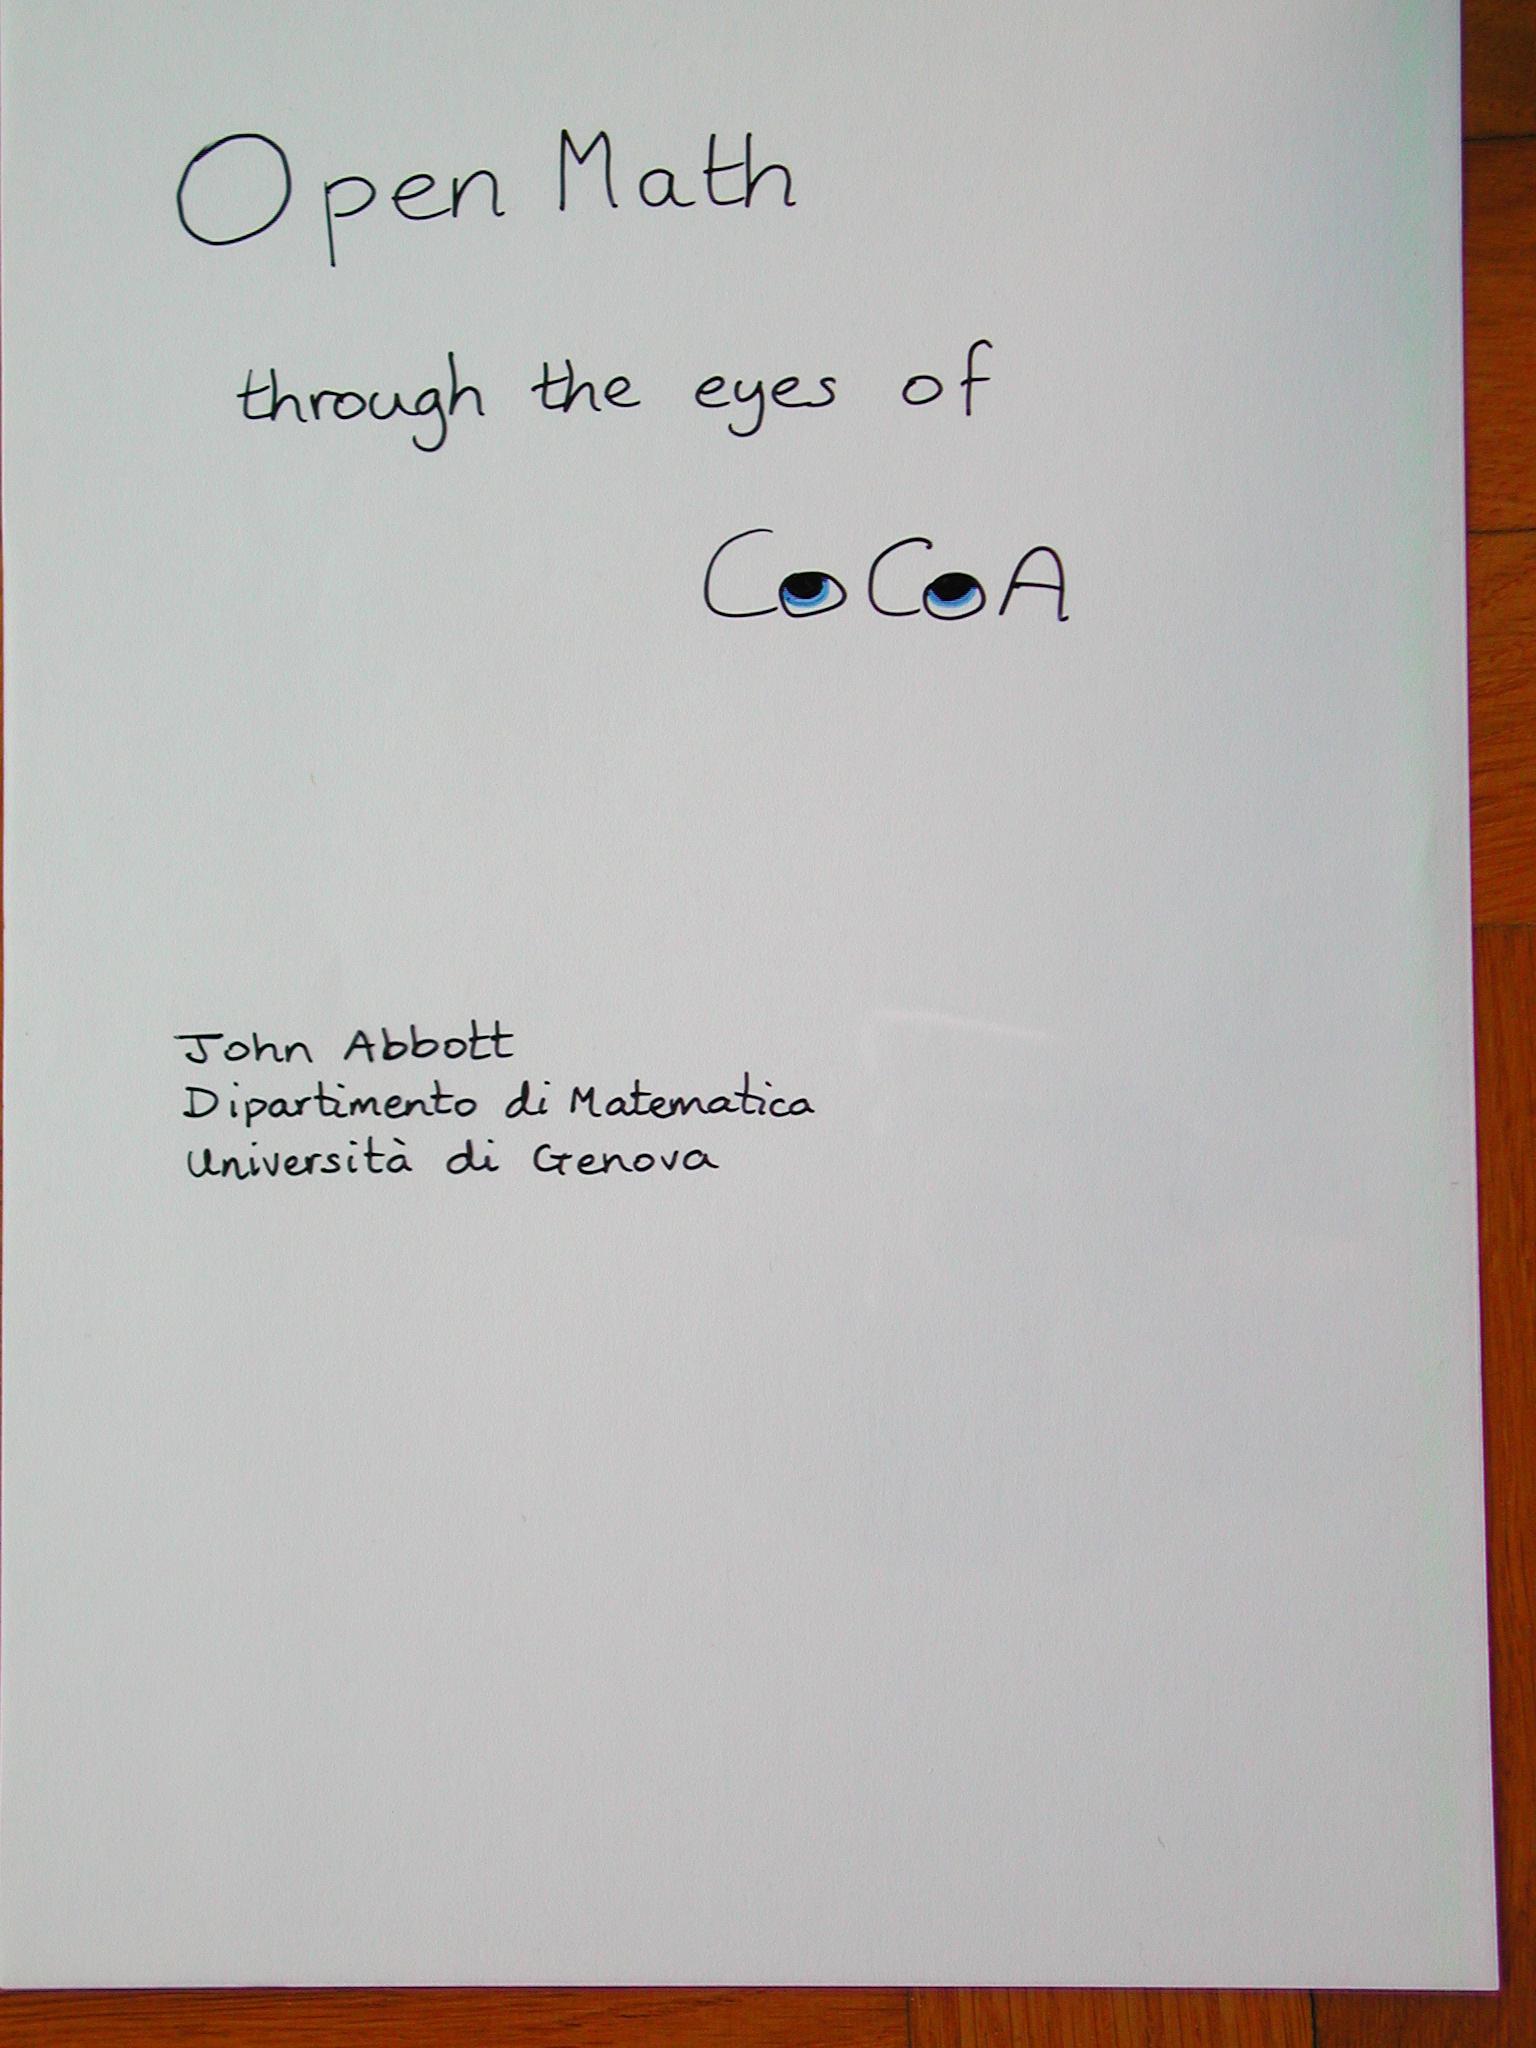 Open Math
through the eyes of
CoCoA
John Abbott
Dipartimento di Matematica
Università di Genova